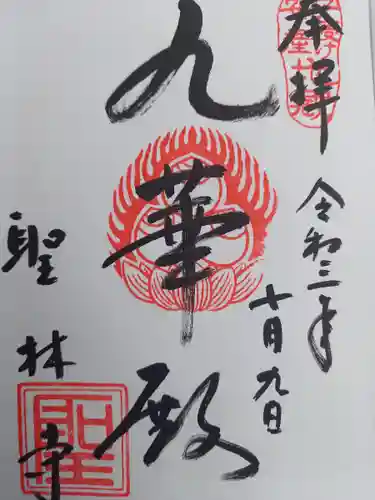 奉拝
令和三年
十月九日
九華殿
聖林寺
聖